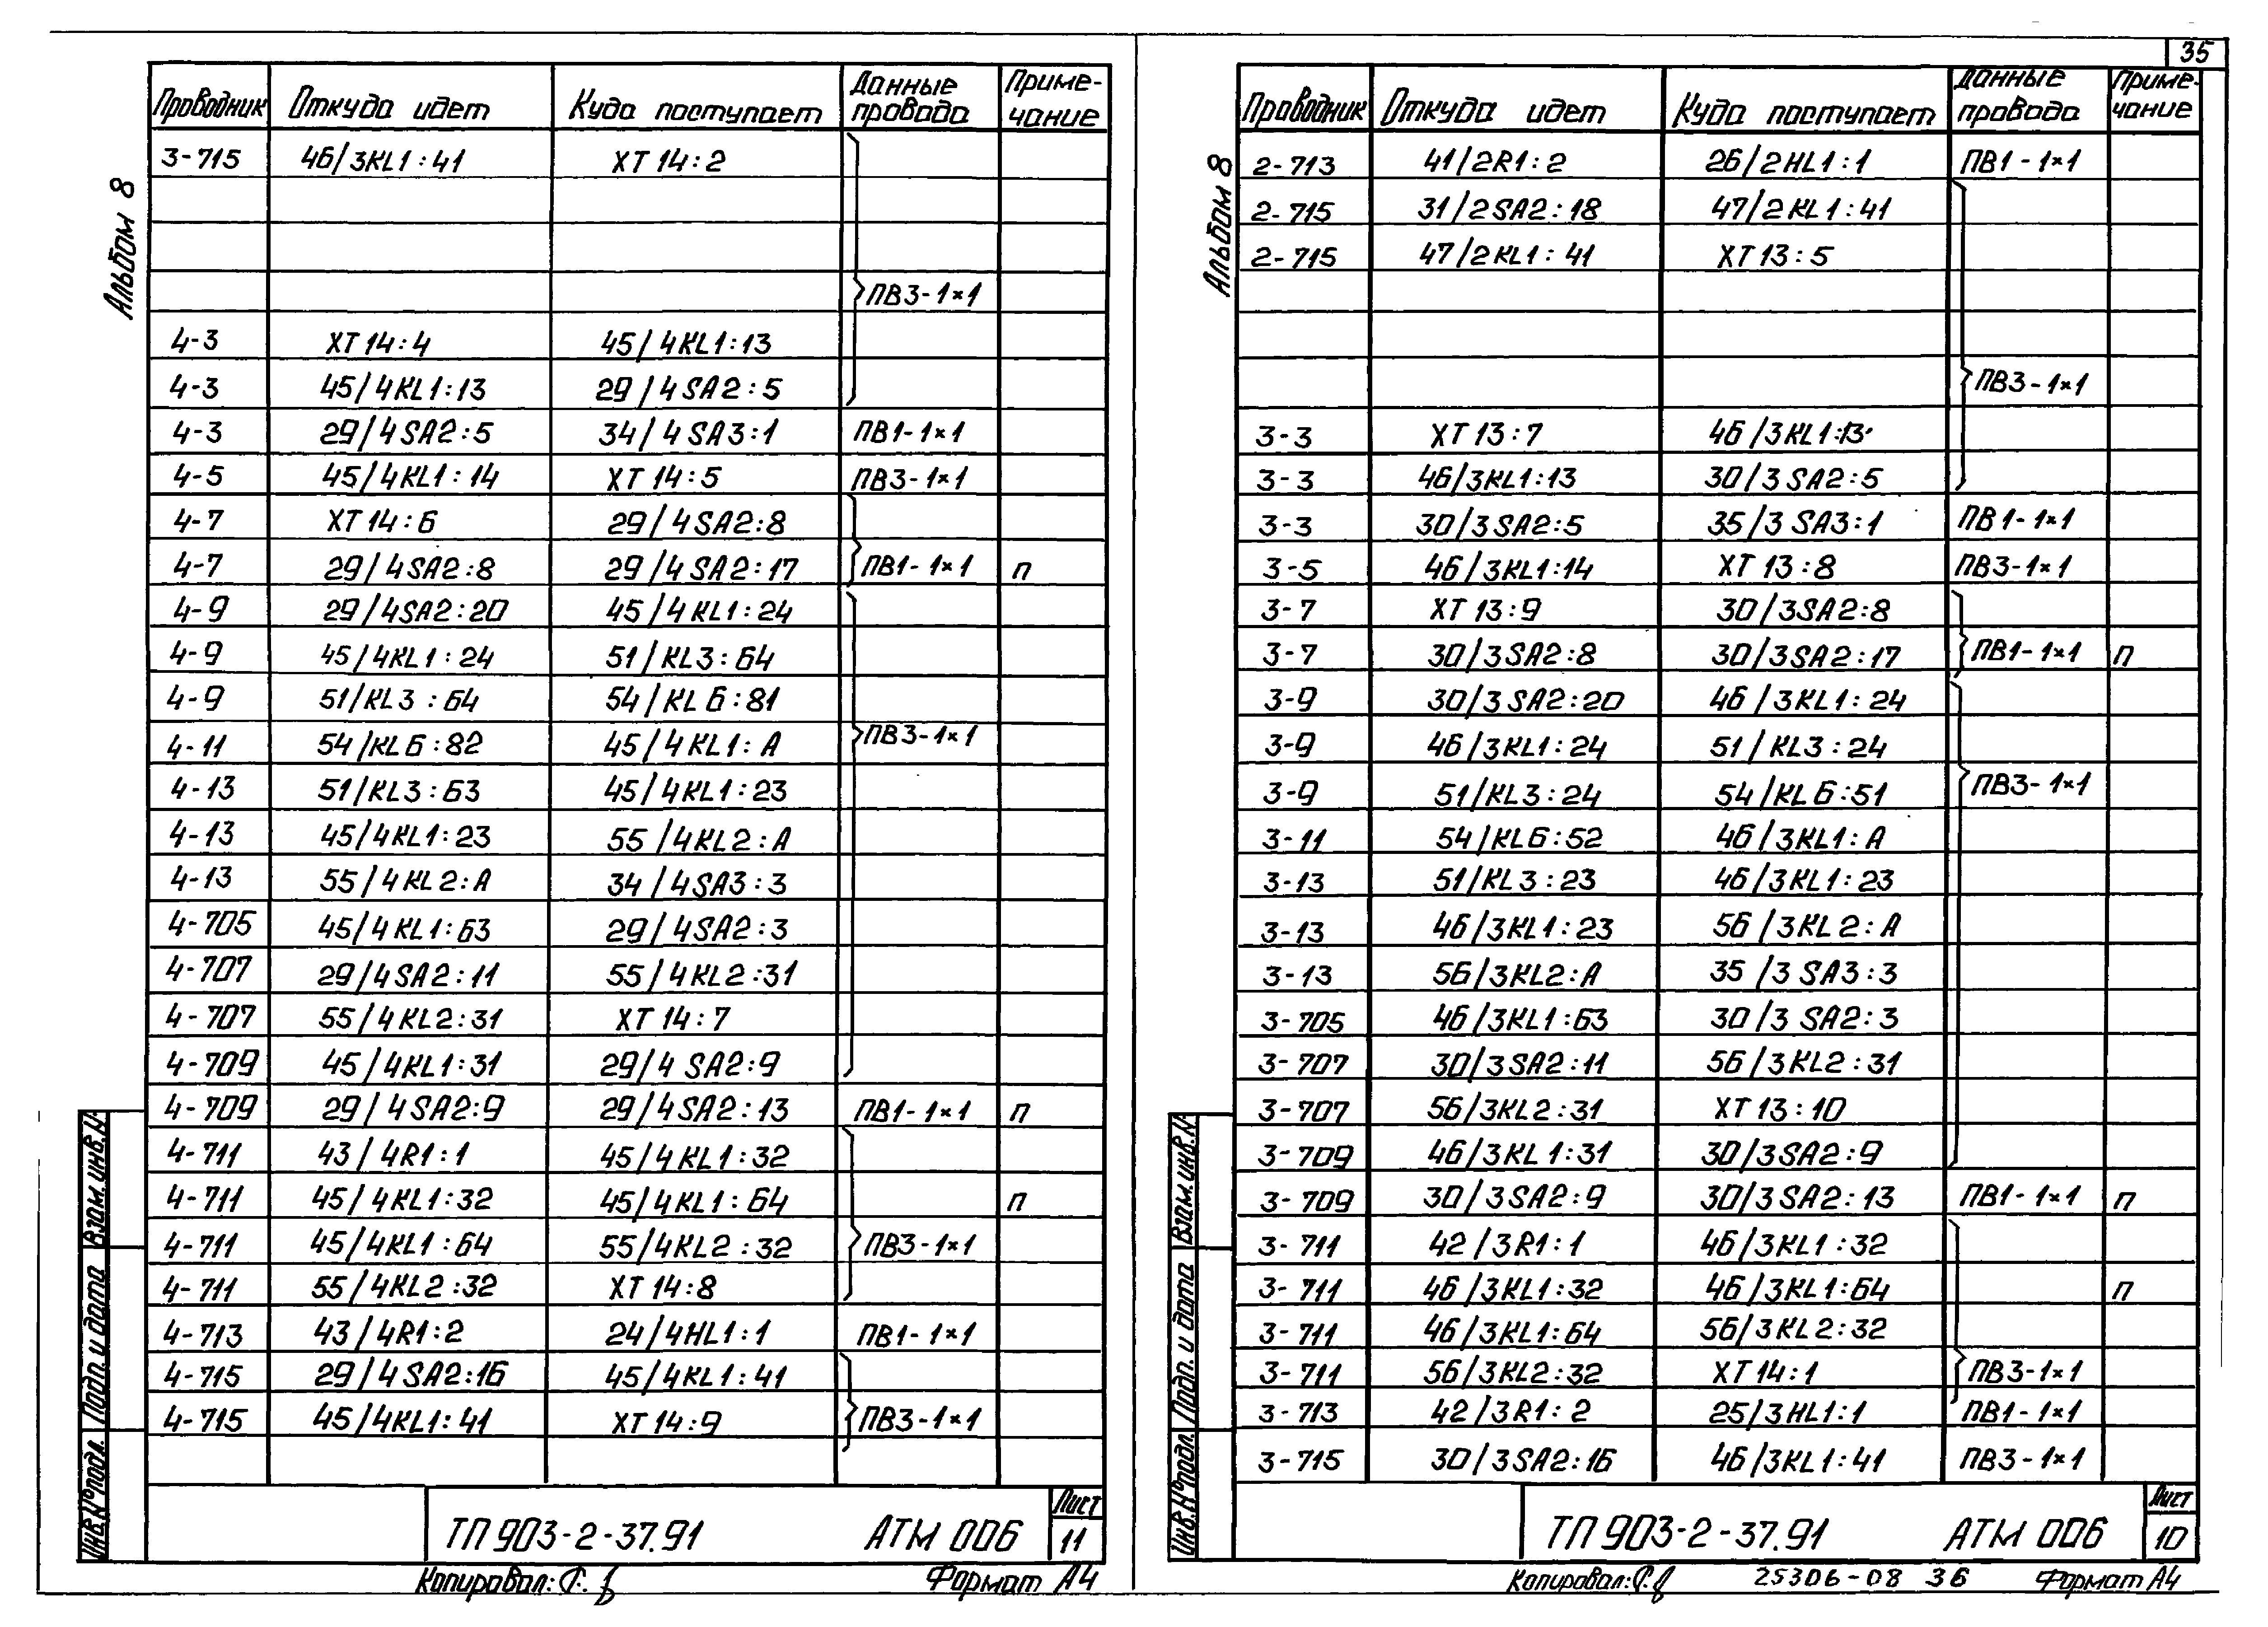 35
Альбом 8
Проводник Откуда идет Куда поступает Данные провода Приме-чание
3-715 46/3KL1:41 XT14:2
ПВ3-1×1
4-3 XT14:4 45/4KL1:13
4-3 45/4KL1:13 29/4SA2:5
4-3 29/4SA2:5 34/4SA3:1 ПВ1-1×1
4-5 45/4KL1:14 XT14:5 ПВ3-1×1
4-7 XT14:6 29/4SA2:8
4-7 29/4SA2:8 29/4SA2:17 ПВ1-1×1 п
4-9 29/4SA2:20 45/4KL1:24
4-9 45/4KL1:24 51/KL3:64
4-9 51/KL3:64 54/KL6:81
4-11 54/KL6:82 45/4KL1:A ПВ3-1×1
4-13 51/KL3:63 45/4KL1:23
4-13 45/4KL1:23 55/4KL2:A
4-13 55/4KL2:A 34/4SA3:3
4-705 45/4KL1:63 29/4SA2:3
4-707 29/4SA2:11 55/4KL2:31
4-707 55/4KL2:31 XT14:7
4-709 45/4KL1:31 29/4SA2:9
4-709 29/4SA2:9 29/4SA2:13 ПВ1-1×1 п
4-711 43/4R1:1 45/4KL1:32
4-711 45/4KL1:32 45/4KL1:64 п
4-711 45/4KL1:64 55/4KL2:32 ПВ3-1×1
4-711 55/4KL2:32 XT14:8
4-713 43/4R1:2 24/4HL1:1 ПВ1-1×1
4-715 29/4SA2:16 45/4KL1:41
4-715 45/4KL1:41 XT14:9 ПВ3-1×1
Взам. инв. №
Подп. и дата
Инв. № подл.
ТП 903-2-37.91 АТМ 006 Лист 11
Копировал: Формат А4
Альбом 8
Проводник Откуда идет Куда поступает Данные провода Приме-чание
2-713 41/2R1:2 26/2HL1:1 ПВ1-1×1
2-715 31/2SA2:18 47/2KL1:41
2-715 47/2KL1:41 XT13:5
ПВ3-1×1
3-3 XT13:7 46/3KL1:13
3-3 46/3KL1:13 30/3SA2:5
3-3 30/3SA2:5 35/3SA3:1 ПВ1-1×1
3-5 46/3KL1:14 XT13:8 ПВ3-1×1
3-7 XT13:9 30/3SA2:8
3-7 30/3SA2:8 30/3SA2:17 ПВ1-1×1 п
3-9 30/3SA2:20 46/3KL1:24
3-9 46/3KL1:24 51/KL3:24
3-9 51/KL3:24 54/KL6:51 ПВ3-1×1
3-11 54/KL6:52 46/3KL1:A
3-13 51/KL3:23 46/3KL1:23
3-13 46/3KL1:23 56/3KL2:A
3-13 56/3KL2:A 35/3SA3:3
3-705 46/3KL1:63 30/3SA2:3
3-707 30/3SA2:11 56/3KL2:31
3-707 56/3KL2:31 XT13:10
3-709 46/3KL1:31 30/3SA2:9
3-709 30/3SA2:9 30/3SA2:13 ПВ1-1×1 п
3-711 42/3R1:1 46/3KL1:32
3-711 46/3KL1:32 46/3KL1:64 п
3-711 46/3KL1:64 56/3KL2:32
3-711 56/3KL2:32 XT14:1 ПВ3-1×1
3-713 42/3R1:2 25/3HL1:1 ПВ1-1×1
3-715 30/3SA2:16 46/3KL1:41 ПВ3-1×1
Взам. инв. №
Подп. и дата
Инв. № подл.
ТП 903-2-37.91 АТМ 006 Лист 10
Копировал: 25306-08 36 Формат А4